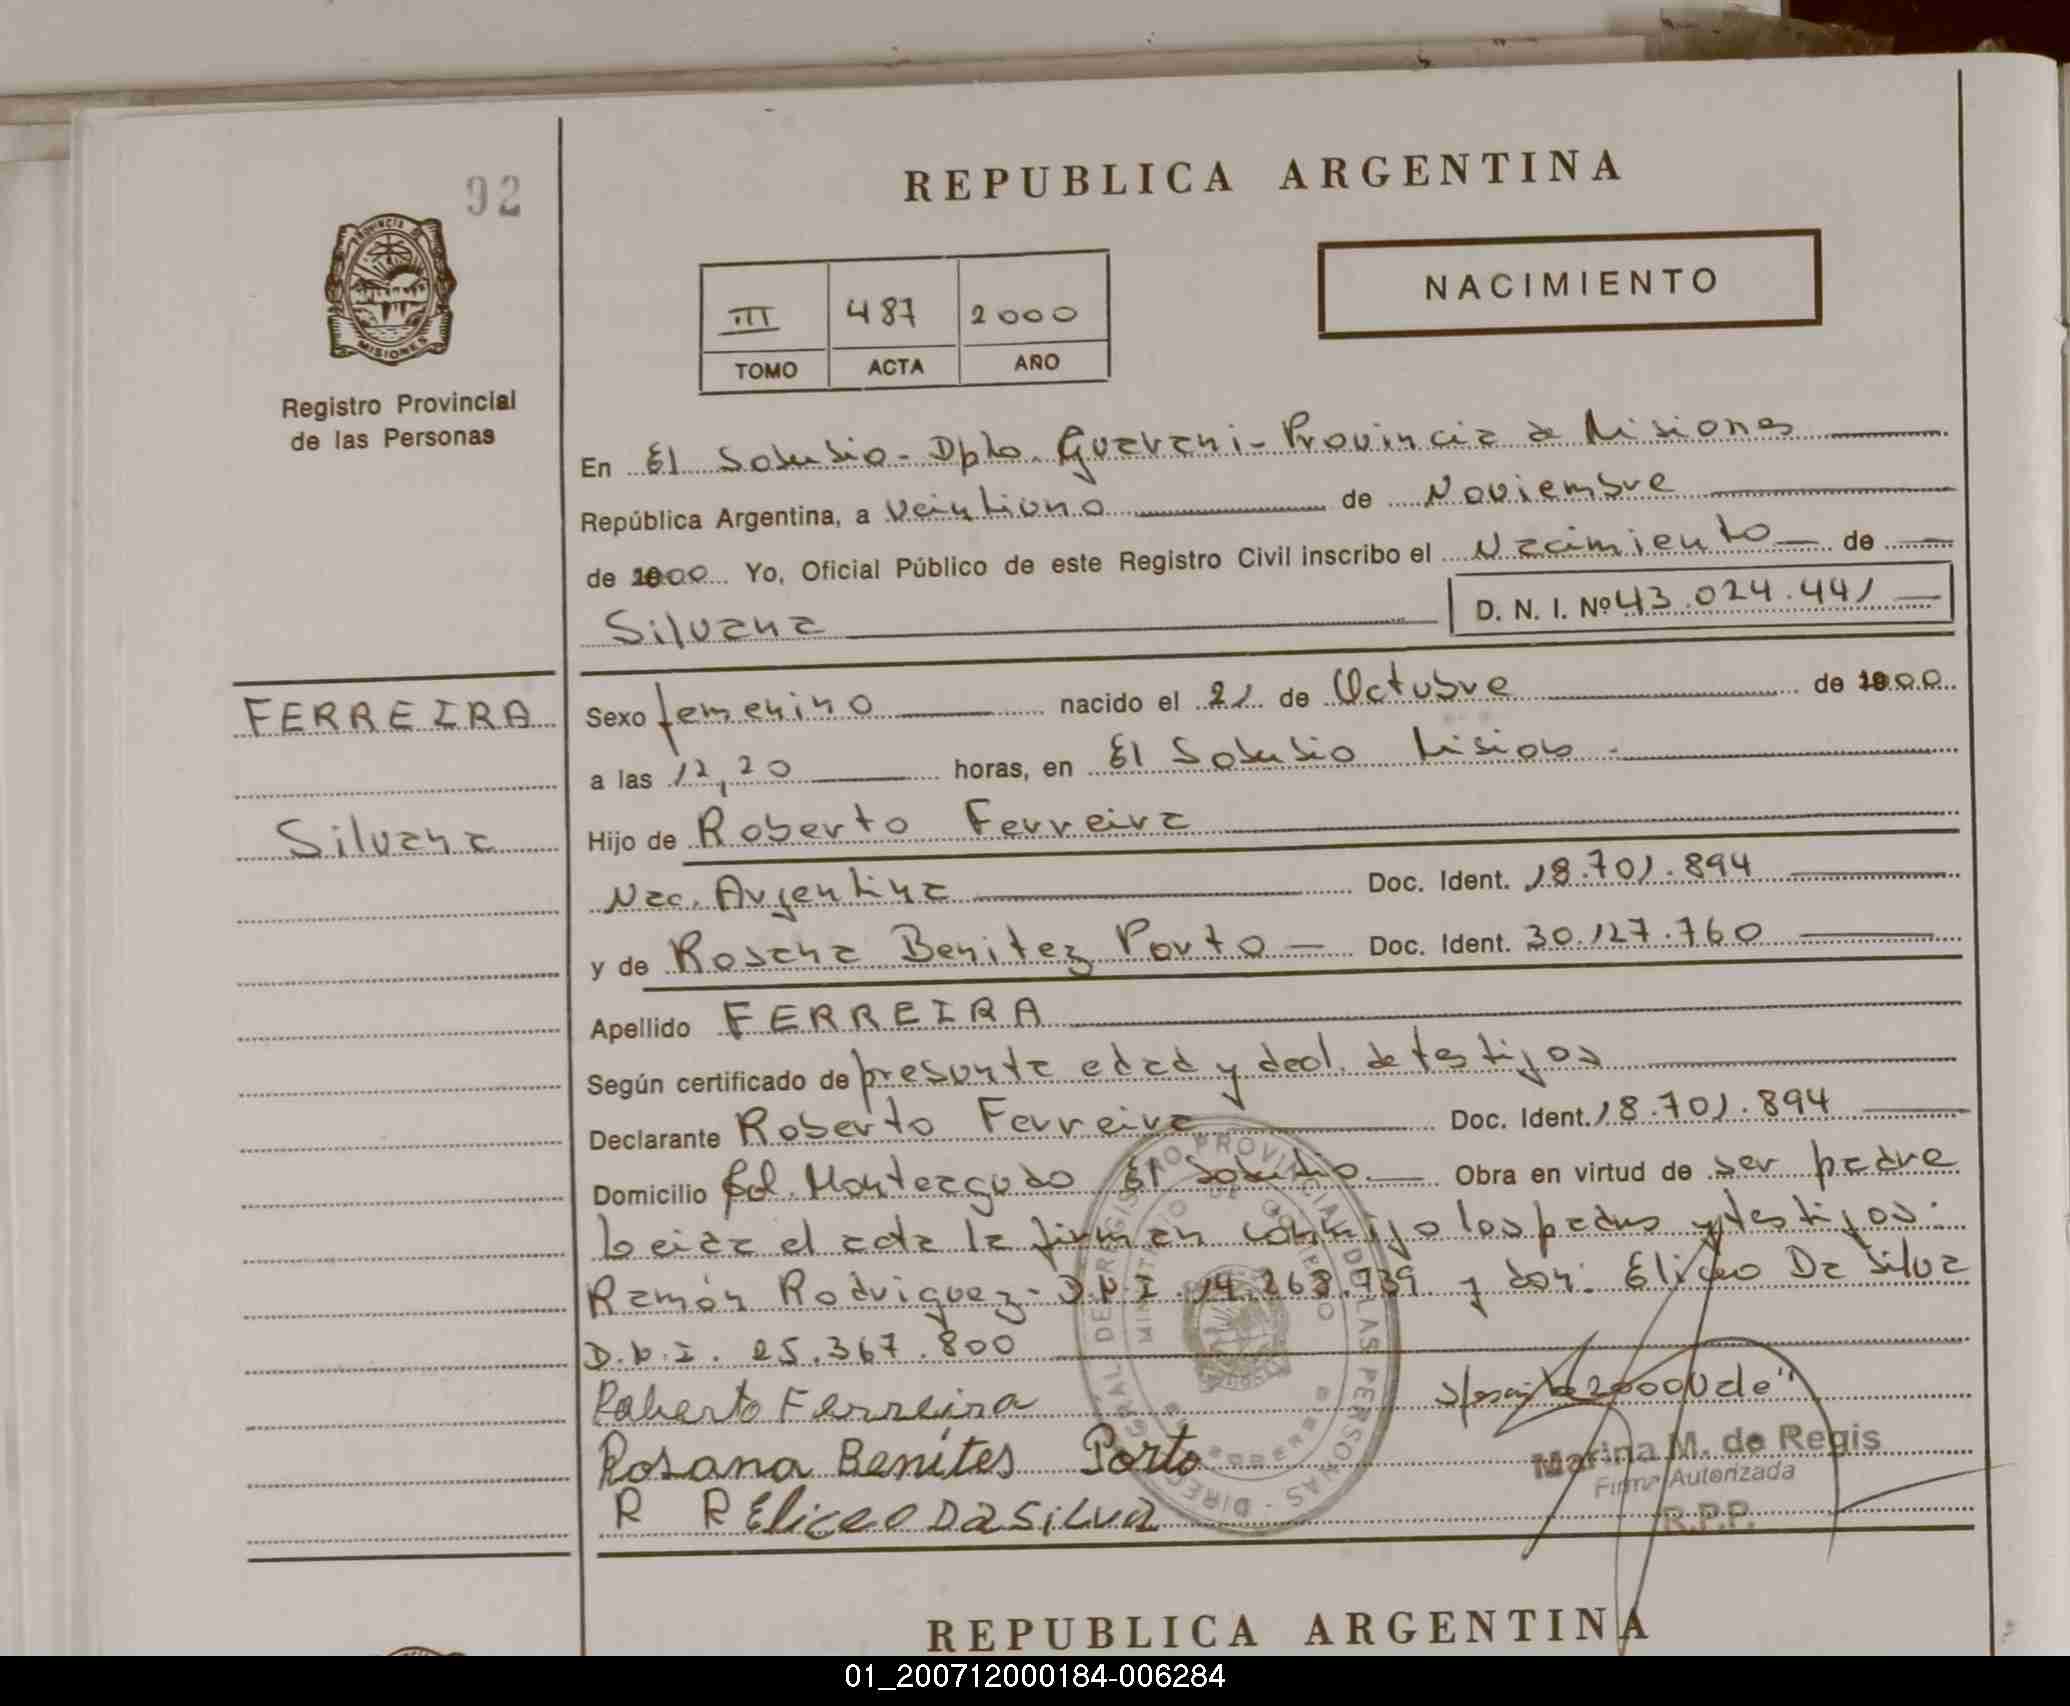 92
REPUBLICA ARGENTINA
PROVINCIA DE
MISIONES
Registro Provincial
de las Personas
III 487 2000
TOMO ACTA AÑO
NACIMIENTO
En El Soberbio - Dpto. Guarani - Provincia de Misiones
República Argentina, a Veintiuno de Noviembre
de 2000 Yo, Oficial Público de este Registro Civil inscribo el Nacimiento de
Silvana D. N. I. Nº 43.024.441
FERREIRA
Silvana
Sexo femenino nacido el 21 de Octubre de 2000
a las 12,20 horas, en El Soberbio Misiones
Hijo de Roberto Ferreira
Nac. Argentina Doc. Ident. 18.701.894
y de Rosana Benitez Porto Doc. Ident. 30.127.760
Apellido FERREIRA
Según certificado de presunta edad y decl. de testigos
Declarante Roberto Ferreira Doc. Ident. 18.701.894
Domicilio Col. Monteagudo El Soberbio Obra en virtud de ser padre
Leida el acta la firman conmigo los padres y testigos:
Ramón Rodriguez - D.N.I. 14.263.739 y don: Eliceo Da Silva
D.N.I. 25.367.800
Roberto Ferreira
Rosana Benites Porto
R R Eliceo Da Silva
2000 Vale"
Marina M. de Regis
Firma Autorizada
R.P.P.
DIRECCION GENERAL DE REGISTRO PROVINCIAL DE LAS PERSONAS
MINISTERIO DE GOBIERNO
REPUBLICA ARGENTINA
01_200712000184-006284